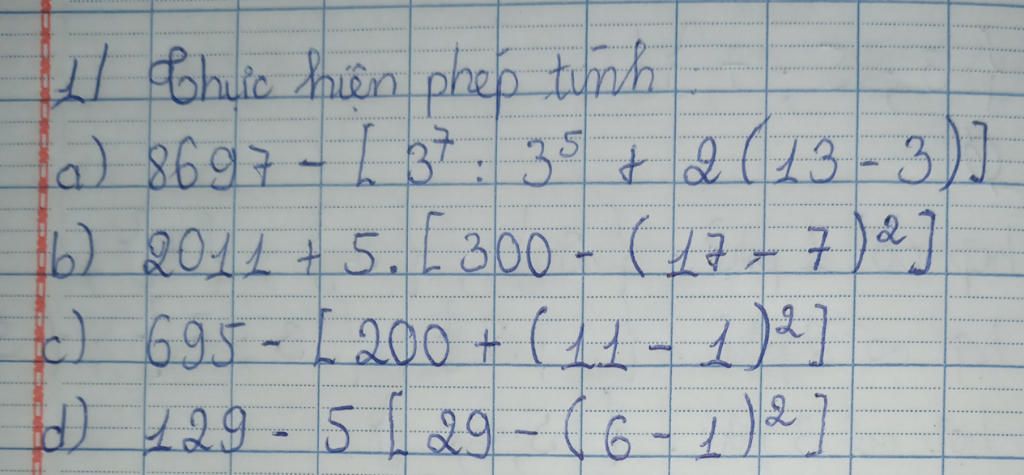 1/ Thực hiện phép tính
a) 8697 - [ 3⁷ : 3⁵ + 2 ( 13 - 3 ) ]
b) 2011 + 5. [ 300 - ( 17 - 7 )² ]
c) 695 - [ 200 + ( 11 - 1 )² ]
d) 129 - 5 [ 29 - ( 6 - 1 )² ]